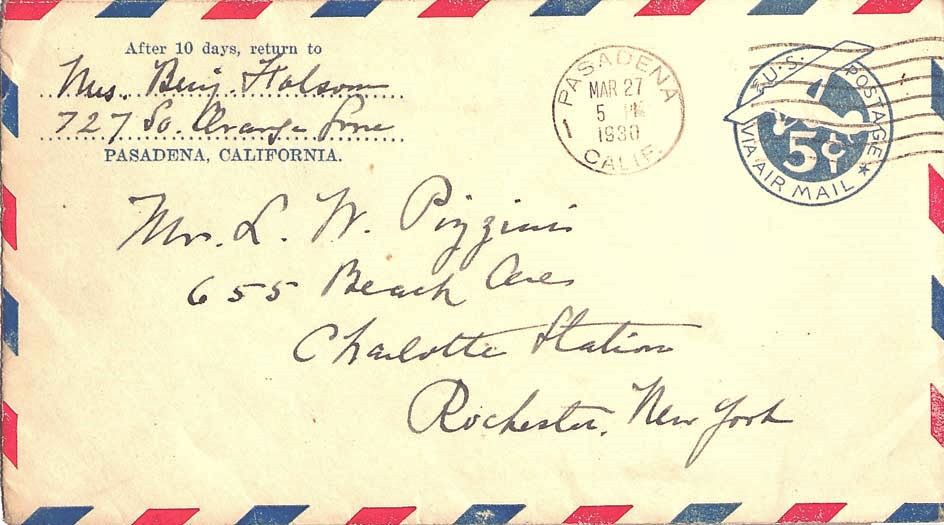 After 10 days, return to
Mrs. Benj. Folsom
727 So. Orange Grove
PASADENA, CALIFORNIA.
PASADENA
MAR 27
5 PM
1930
1
CALIF.
U.S. POSTAGE
5¢
VIA AIR MAIL
Mr. L. W. Pizzini
655 Beach Ave
Charlotte Station
Rochester, New York